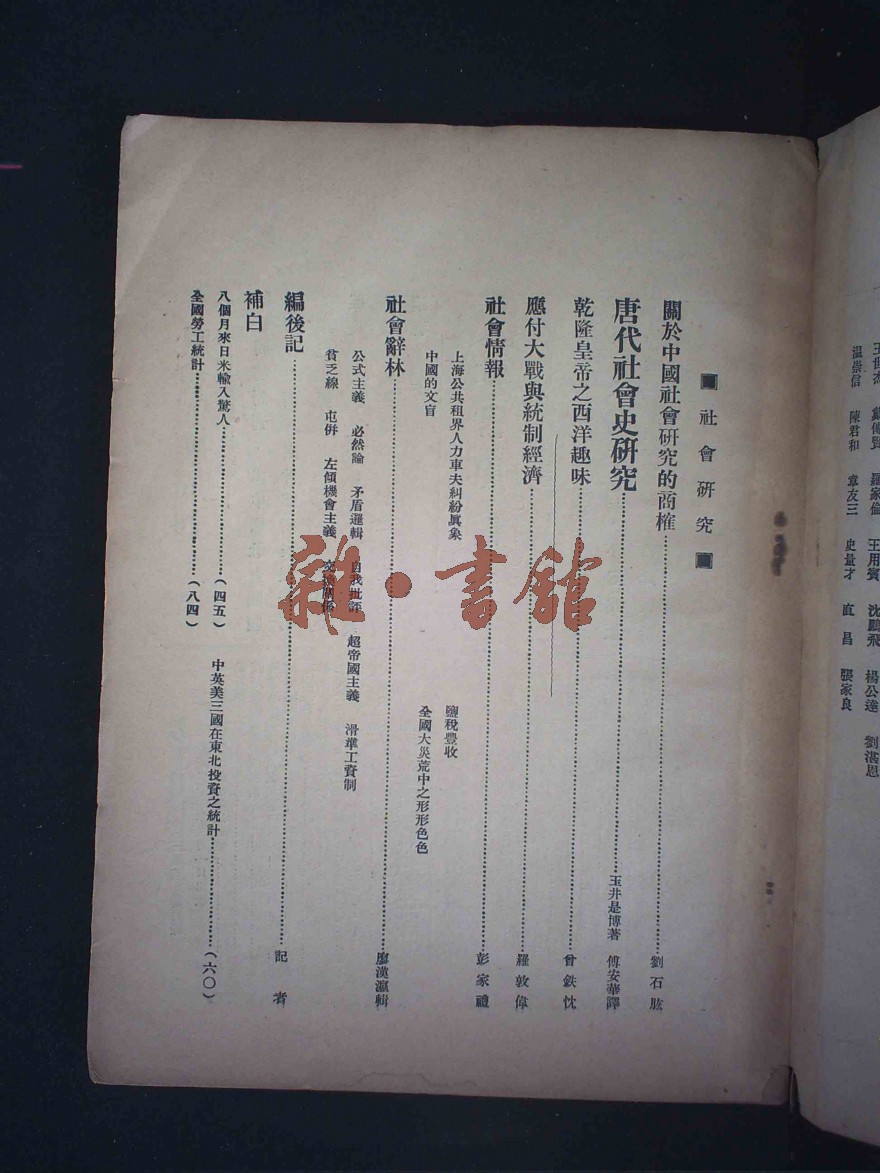 ■社會研究■
關於中國社會研究的商榷……劉石肱
唐代社會史研究……玉井是博著 傅安華譯
乾隆皇帝之西洋趣味……曾鉄忱
應付大戰與統制經濟……羅敦偉
社會情報……彭家禮
上海公共租界人力車夫糾紛眞象 鹽稅豐收
中國的文盲 全國大災荒中之形形色色
社會辭林……廖漢瀛輯
公式主義 必然論 矛盾邏輯 自我批評 超帝國主義 滑準工資制
貧乏線 屯併 左傾機會主義 交換關係
編後記……記者
補白
八個月來日米輸入驚人……(四五) 中英美三國在東北投資之統計……(六〇)
全國勞工統計……(八四)
雜·書館
王世杰 戴傳賢 羅家倫 王用賓 沈鵬飛 楊公達 劉湛恩
溫崇信 陳君和 章友三 史量才 直昌 張家良